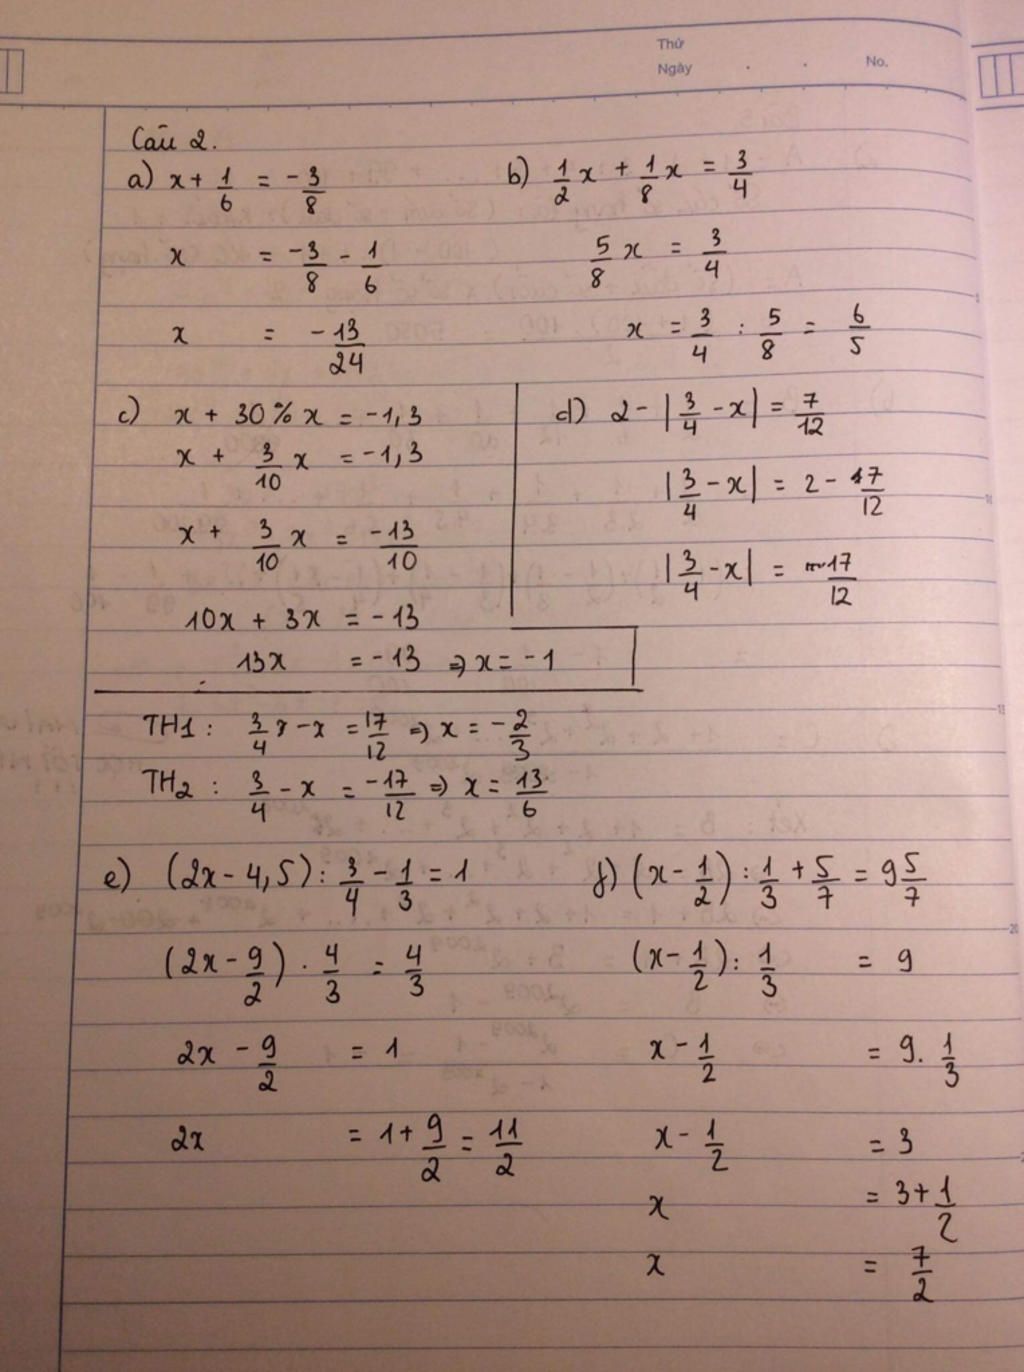 Thứ
Ngày . . No.
Câu 2.
a) x + 1/6 = -3/8
x = -3/8 - 1/6
x = -13/24
b) 1/2 x + 1/8 x = 3/4
5/8 x = 3/4
x = 3/4 : 5/8 = 6/5
c) x + 30% x = -1,3
x + 3/10 x = -1,3
x + 3/10 x = -13/10
10x + 3x = -13
13x = -13 => x = -1
d) 2 - |3/4 - x| = 7/12
|3/4 - x| = 2 - 17/12
|3/4 - x| = 17/12
TH1 : 3/4 - x = 17/12 => x = -2/3
TH2 : 3/4 - x = -17/12 => x = 13/6
e) (2x - 4,5) : 3/4 - 1/3 = 1
(2x - 9/2) . 4/3 = 4/3
2x - 9/2 = 1
2x = 1 + 9/2 = 11/2
f) (x - 1/2) : 1/3 + 5/7 = 9 5/7
(x - 1/2) : 1/3 = 9
x - 1/2 = 9 . 1/3
x - 1/2 = 3
x = 3 + 1/2
x = 7/2